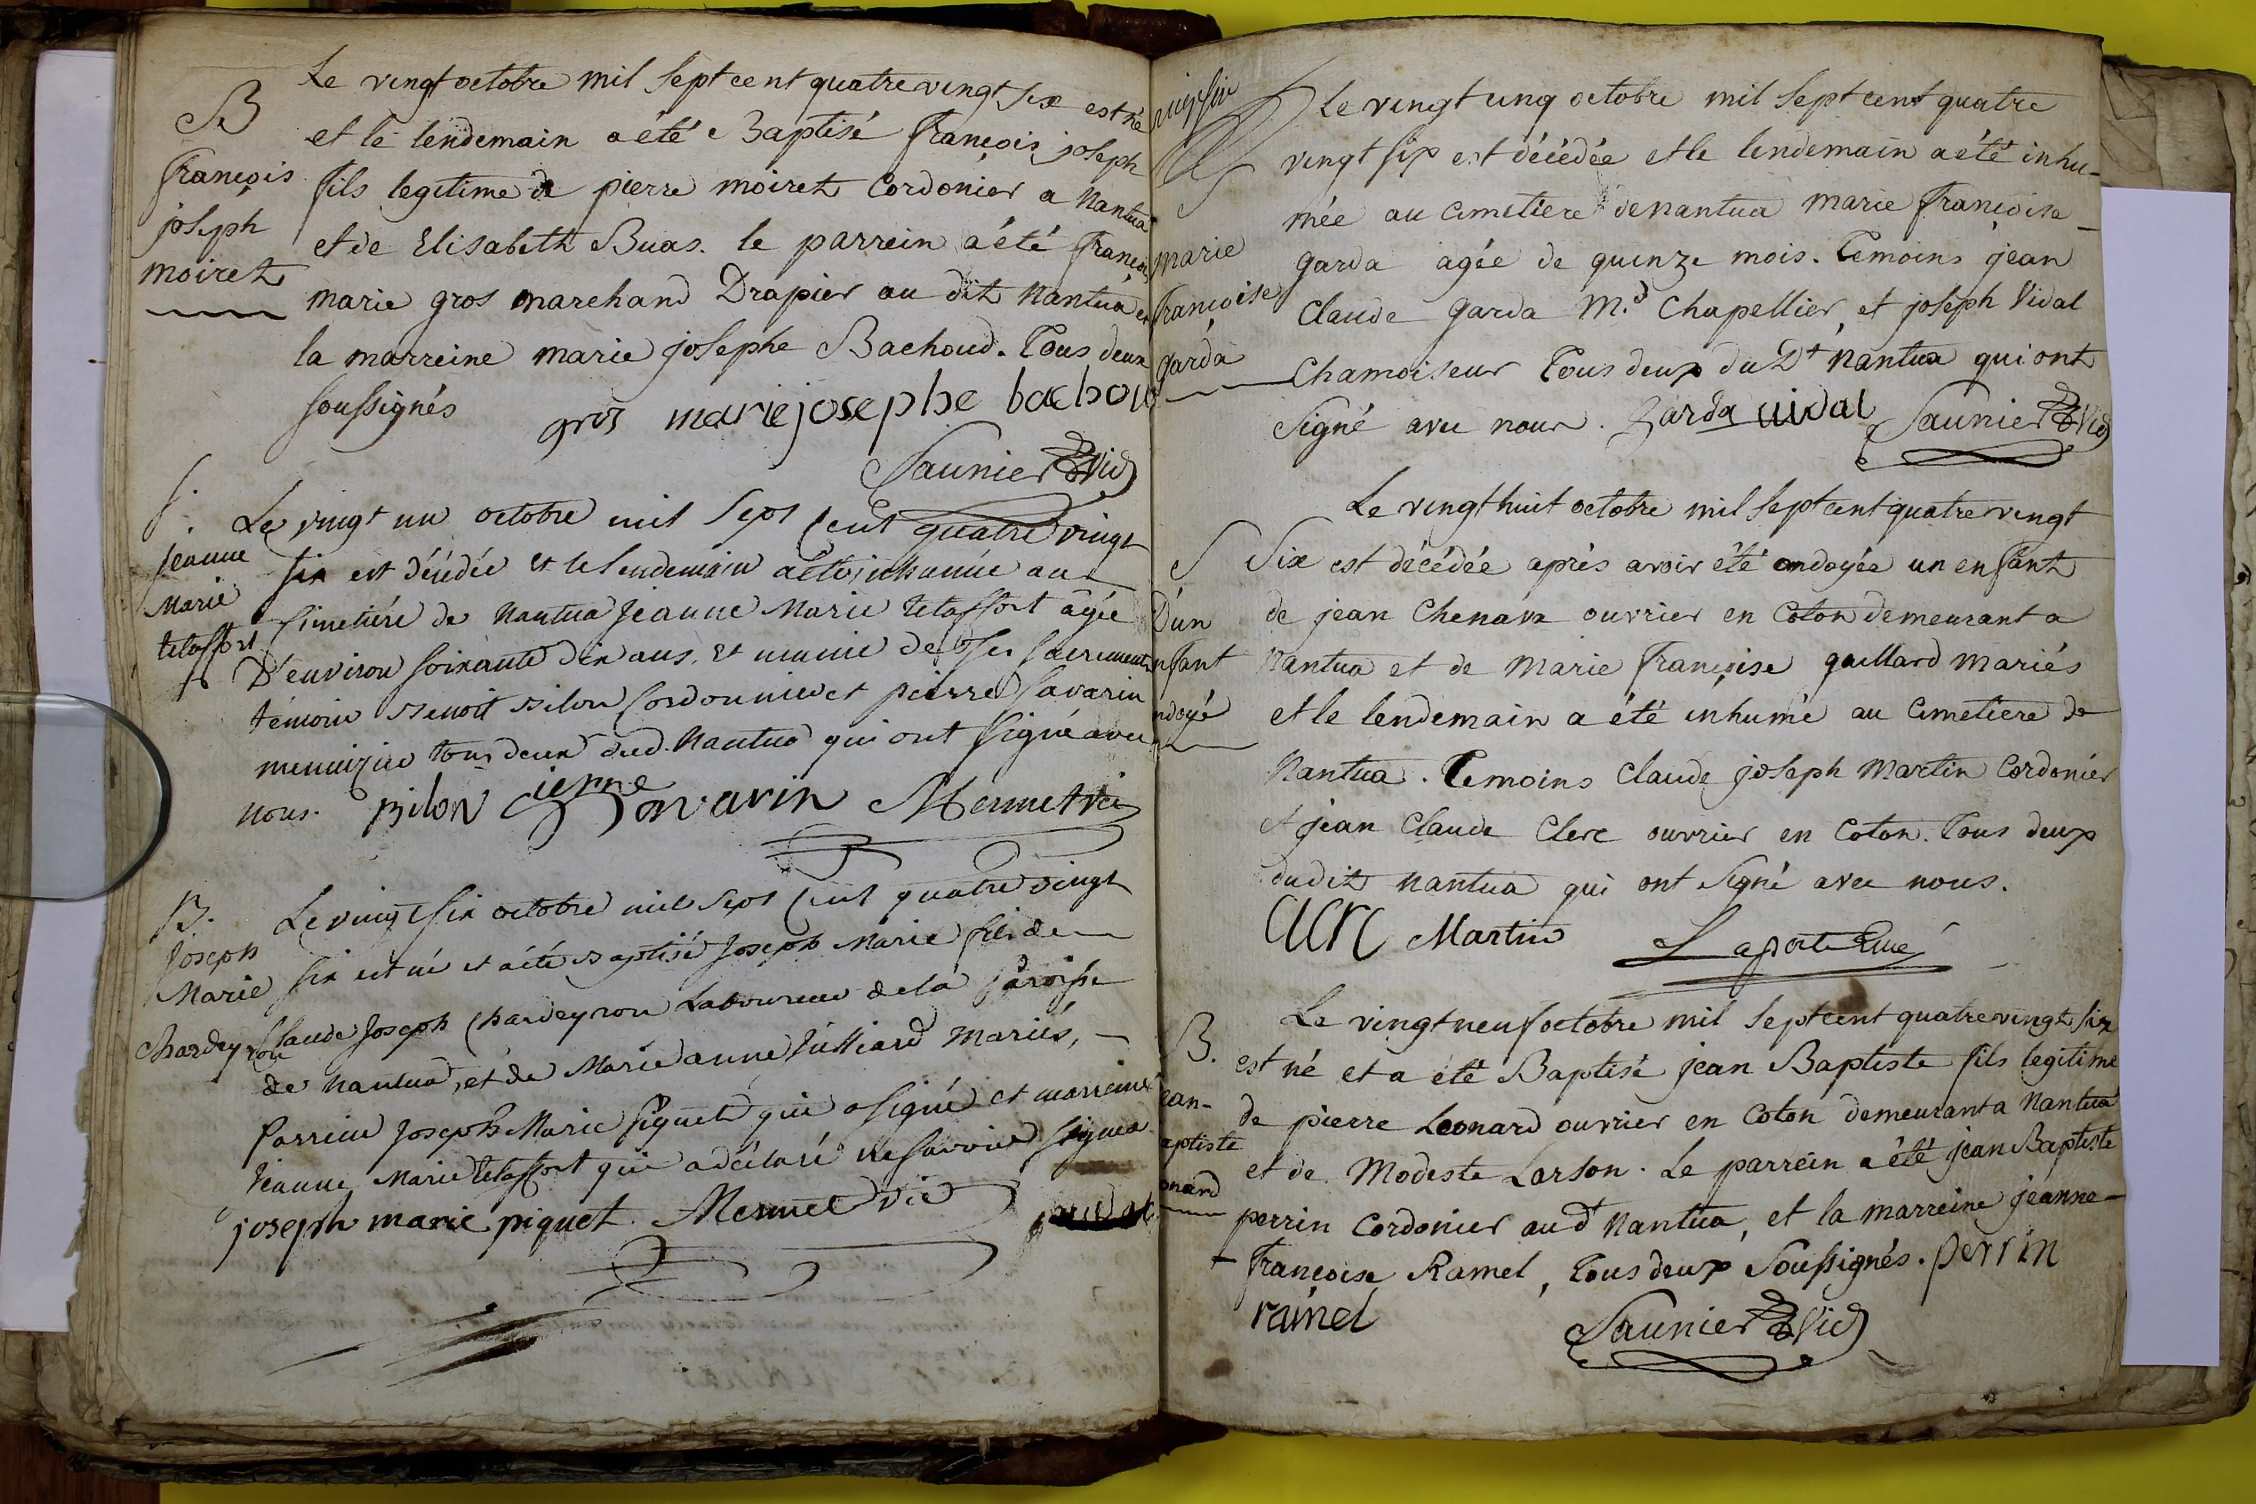 B
françois
joseph
moiret
Le vingt octobre mil sept cent quatre vingt six est né
et le lendemain a été Baptisé françois joseph
fils legitime de pierre moiret Cordonier a Nantua
et de Elisabeth Buas. le parrein a été françois
marie gros marchand Drapier au dit Nantua et
la marreine marie josephe Bachoud. Tous deux
soussignés gros marie josephe bachoud
Saunier Vic
S.
Jeanne
Marie
telaffort
Le vingt un octobre mil sept cent quatre vingt
six est décédée et le lendemain a été inhumée au
Cimetière de Nantua Jeanne Marie telaffort âgée
D'environ soixante dix ans, et munie de ses sacrements
témoins Benoit Bilon Cordonnier et pierre Savarin
menuizier tous deux dud. Nantua qui ont signé avec
nous. Bilon pierre Savarin Mermet vic
B.
Joseph
Marie
Chardeyron
Le vingt six octobre mil sept cent quatre vingt
six est né et a été Baptisé Joseph Marie fils de
Claude Joseph Chardeyron Laboureur de la paroisse
de Nantua, et de Marie anne Julliard Mariés,
Parrein Joseph Marie piquet qui a signé et marreine
Jeanne Marie telaffort qui a déclaré ne savoir signer
joseph marie piquet. Mermet vic
S
marie
françoise
garda
Le vingt cinq octobre mil sept cent quatre
vingt six est décédée et le lendemain a été inhu-
mée au cimetiere de nantua marie françoise
garda agée de quinze mois. Temoins jean
Claude garda M.d Chapellier, et joseph Vidal
Chamoiseur Tous deux du Dt Nantua qui ont
Signé avec nous. garda vidal Saunier Vic
S
D'un
nfant
ndoyé
Le vingt huit octobre mil sept cent quatre vingt
Six est décédée après avoir été ondoyée un enfant
de jean Chenava ouvrier en Coton demeurant a
Nantua et de Marie françoise gaillard mariés
et le lendemain a été inhumé au cimetiere de
Nantua. Temoins Claude joseph Martin Cordonier
et jean Claude Clerc ouvrier en Coton. Tous deux
dudit Nantua qui ont signé avec nous.
Clerc Martin Laporte Curé
B.
ean-
aptiste
onard
Le vingt neuf octobre mil sept cent quatre vingt six
est né et a été Baptisé jean Baptiste fils legitime
de pierre Leonard ouvrier en Coton demeurant a Nantua
et de Modeste Larson. Le parrein a été jean Baptiste
perrin Cordonier au dt Nantua, et la marreine jeanne-
françoise Ramel, Tous deux Soussignés. perrin
ramel Saunier Vic